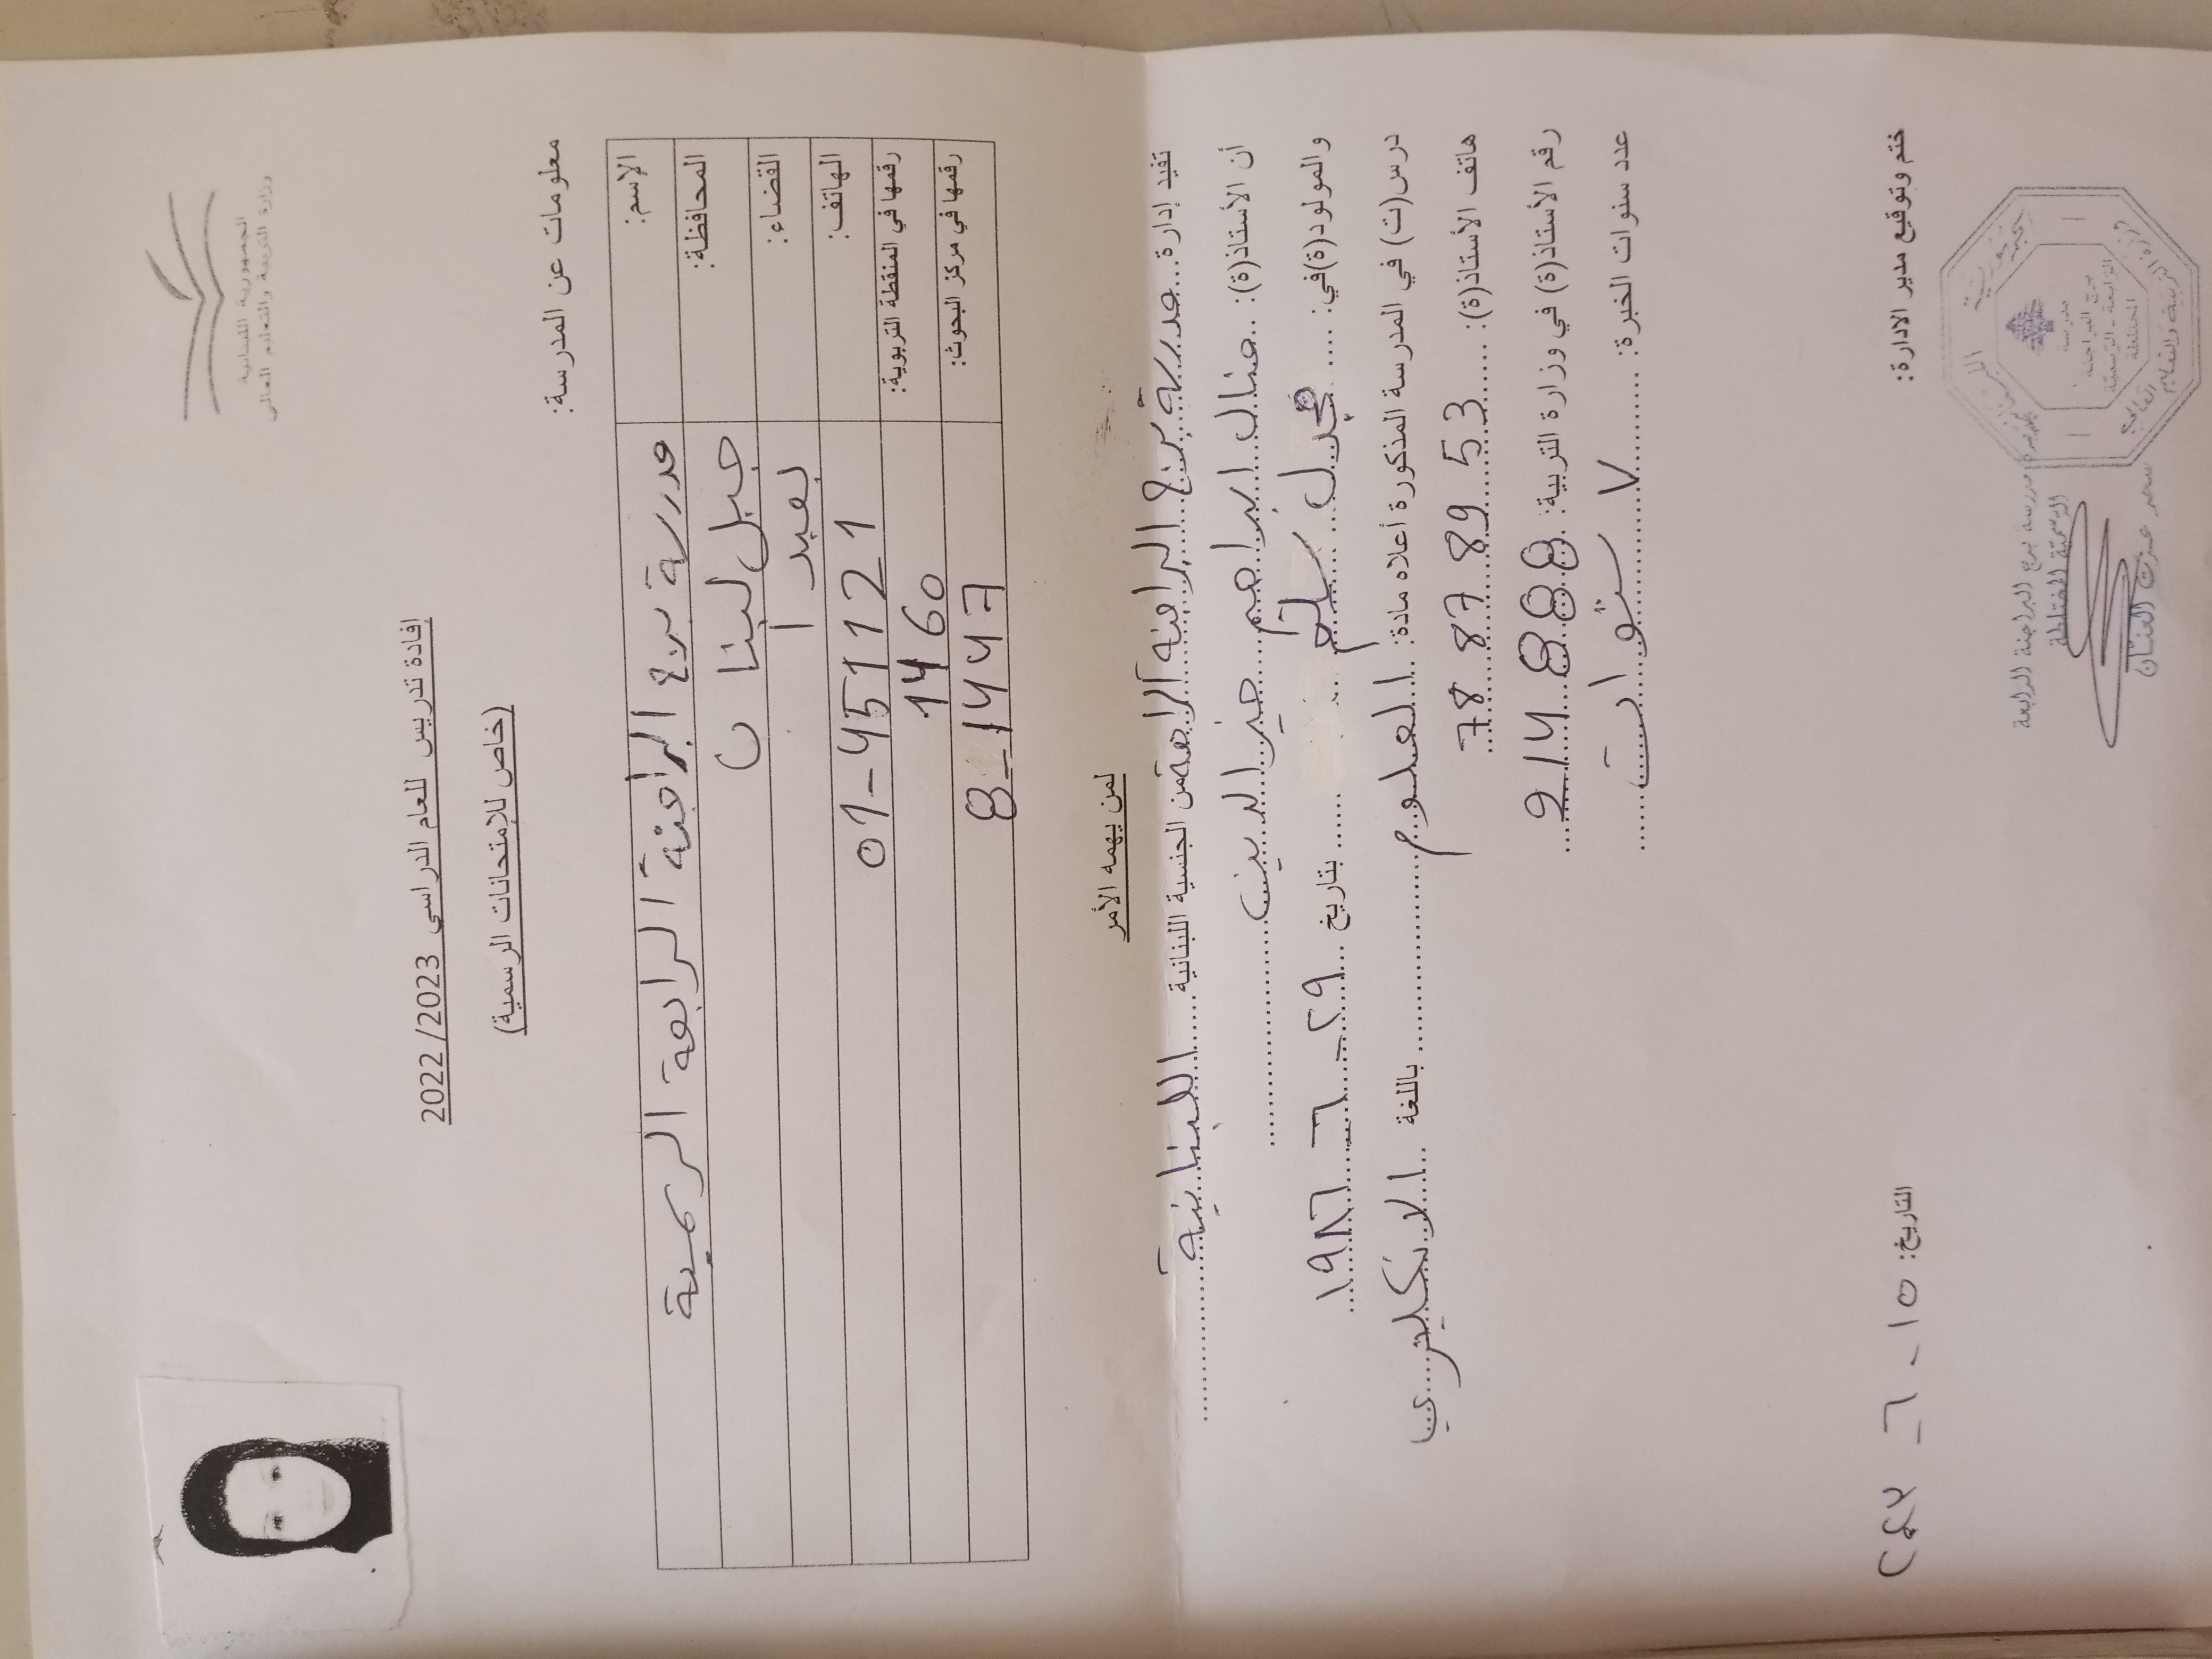 الجمهورية اللبنانية
وزارة التربية والتعليم العالي
إفادة تدريس للعام الدراسي 2022/2023
(خاص للإمتحانات الرسمية)
معلومات عن المدرسة:
الإسم: مدرسة برج البراجنة الرابعة الرسمية
المحافظة: جبل لبنان
القضاء: بعبدا
الهاتف: 01-451121
رقمها في المنقطة التربوية: 1460
رقمها في مركز البحوث: 8-1447
لمن يهمه الأمر
تفيد إدارة مدرسة برج البراجنه الرابعة
أن الأستاذ(ة): منال ابراهيم خير الدين من الجنسية اللبنانية اللبنانية
والمولود(ة)في: مجدل سلم بتاريخ ٢٩-٦-١٩٨٦
درس(ت) في المدرسة المذكورة أعلاه مادة: العلوم باللغة الانكليزي
هاتف الأستاذ(ة): 78 87 89 53
رقم الأستاذ(ة) في وزارة التربية: 914888
عدد سنوات الخبرة: ٧ سنوات
ختم وتوقيع مدير الادارة:
التاريخ: ١٥-٦-٢٠٢٣
مدرسة برج البراجنة الرابعة
الرسمية المختلطة
مدرسة
برج البراجنة
الرابعة - الرسمية
المختلطة